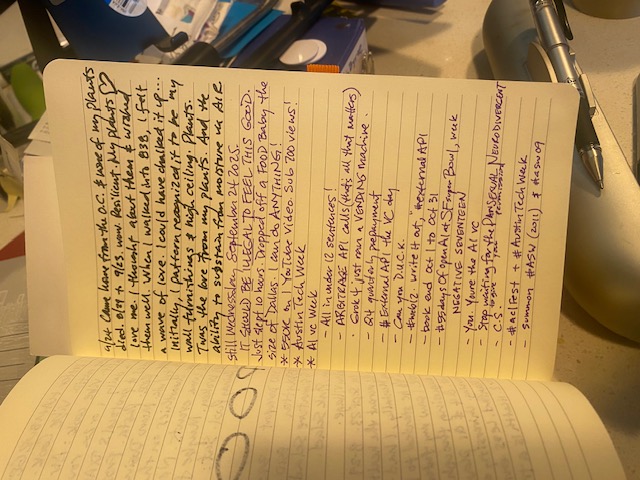 9/24 Came home from the O.C. & none of my plants
died. 8/29 → 9/23. wow. Resilient. My plants ♡
love me. I thought about them & wrapped
them well. When I walked into B3B, I felt
a wave of love. I could have chalked it up...
Initially, I pattern recognized it to be my
wall furnishings & high ceiling. Plants.
Twas the love from my plants. And the
ability to sustain from moisture via AIR
still Wednessday, September 24 2025.
IT SHOULD BE ILLEGAL TO FEEL THIS GOOD.
Just slept 10 hours. Dropped off a FOOD Baby the
size of Dallas. I can do ANYTHING!
* $50K on 1 YouTube Video. Sub 700 views!
* Austin Tech Week
* AI VC Week
- All in under 12 sentences!
- ARBITRAGE API calls (that's all that matters)
· Grok 4 just ran a VENDING machine.
- Q4 quarterly prepayment
- # External API the VC day
- Can you D.U.C.K.
- #web12 write it out, #external API
- book end Oct 1 to Oct 31
- #55days Of OpenAI at SF Super Bowl, week
NEGATIVE SEVENTEEN
- You. You're the AI VC
- Stop waiting for the permission
- C.S. PANSEXUAL NEURODIVERGENT
- #aclfest + #AustinTechWeek
- summon #ASW (2011) & #asw09